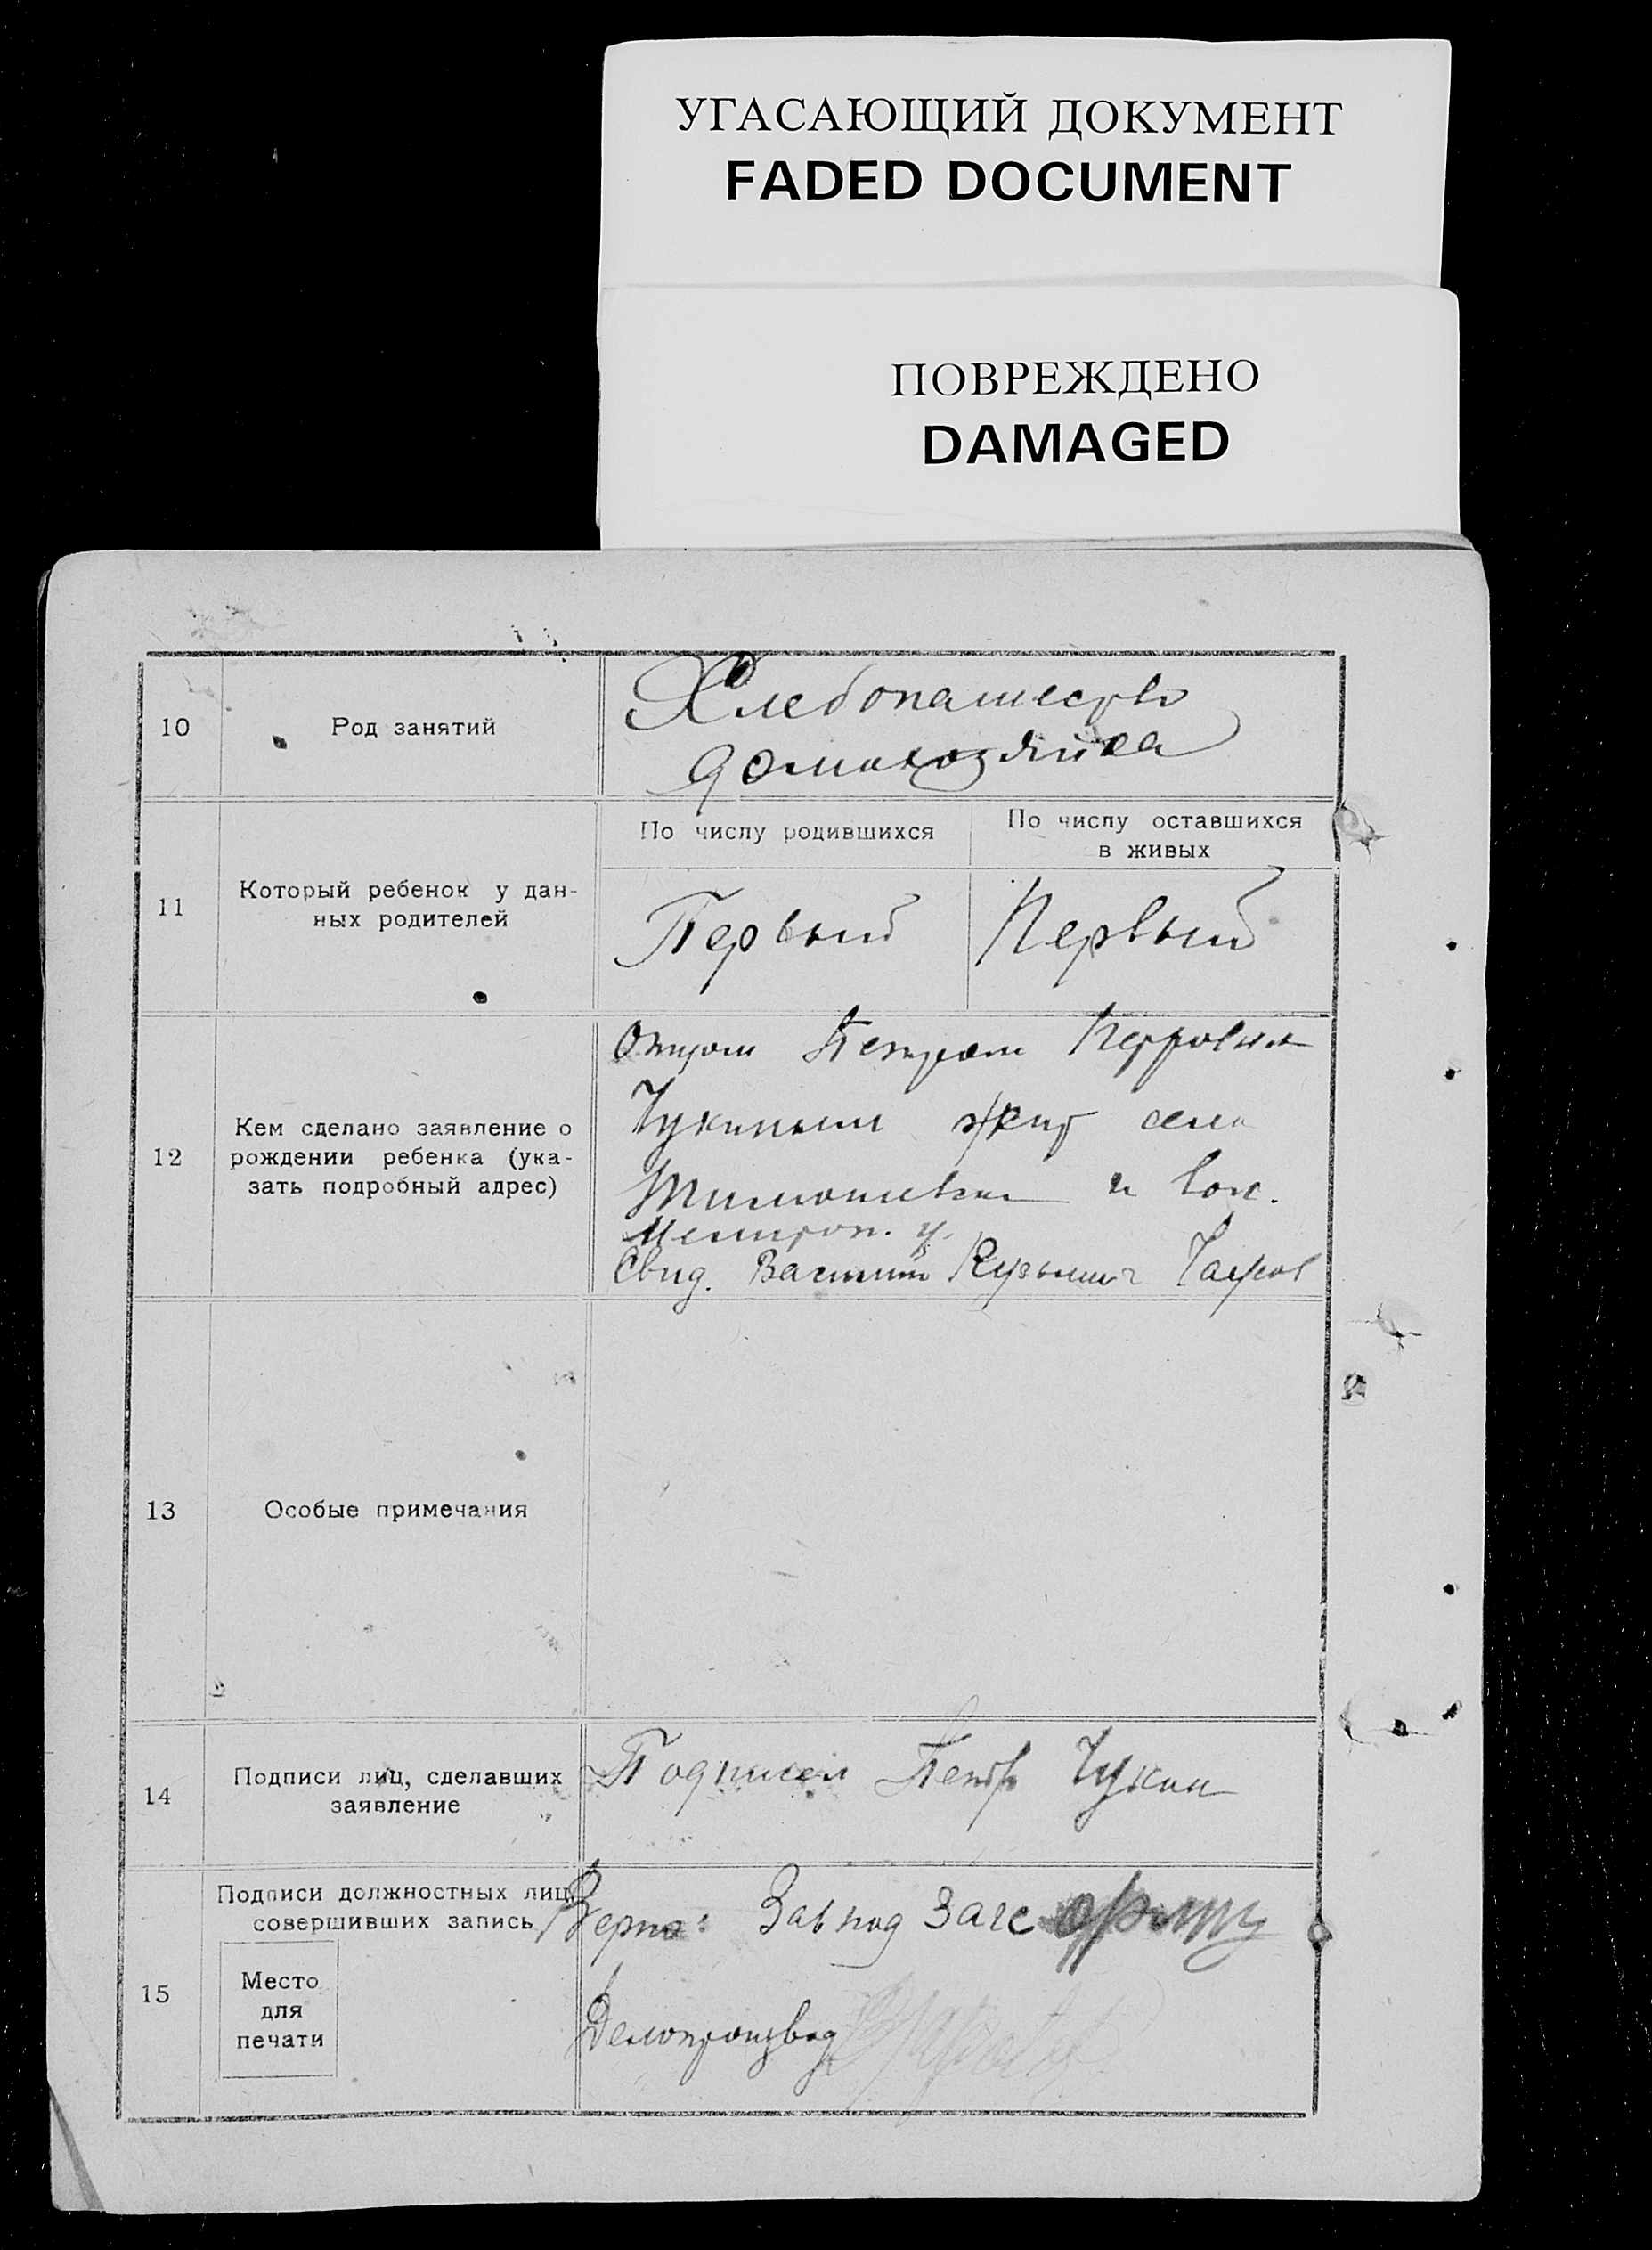 УГАСАЮЩИЙ ДОКУМЕНТ
FADED DOCUMENT
ПОВРЕЖДЕНО
DAMAGED
10
Род занятий
Хлебопашество
домохозяйка
11
Который ребенок у дан-
ных родителей
По числу родившихся
По числу оставшихся
в живых
Первый
Первый
12
Кем сделано заявление о
рождении ребенка (ука-
зать подробный адрес)
Отцом Петром Петровым
Чукиным жит села
и вол.
Свид. Василий Кузьмич
13
Особые примечания
14
Подписи лиц, сделавших
заявление
Подписал Петр Чукин
15
Подписи должностных лиц,
совершивших запись
Место
для
печати
Верно: Зав под Загс
Делопроизвод